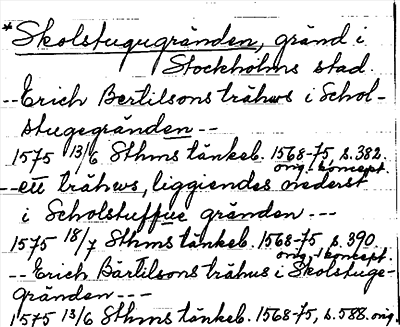 *Skolstugugränden, gränd i
Stockholms stad.
--Erich Bertilsons trähws i Schol-
stugegränden --
1575 13/6 Sthms tänkeb. 1568-75, s. 382.
orig. koncept.
--ett trähws, liggiendes nederst
i Scholstuffue gränden ---
1575 18/7 Sthms tänkeb. 1568-75, s. 390.
orig. koncept.
-- Erich Bärtilsons trähus i Skolstuge-
gränden ---
1575 13/6 Sthms tänkeb. 1568-75, s. 588. orig.